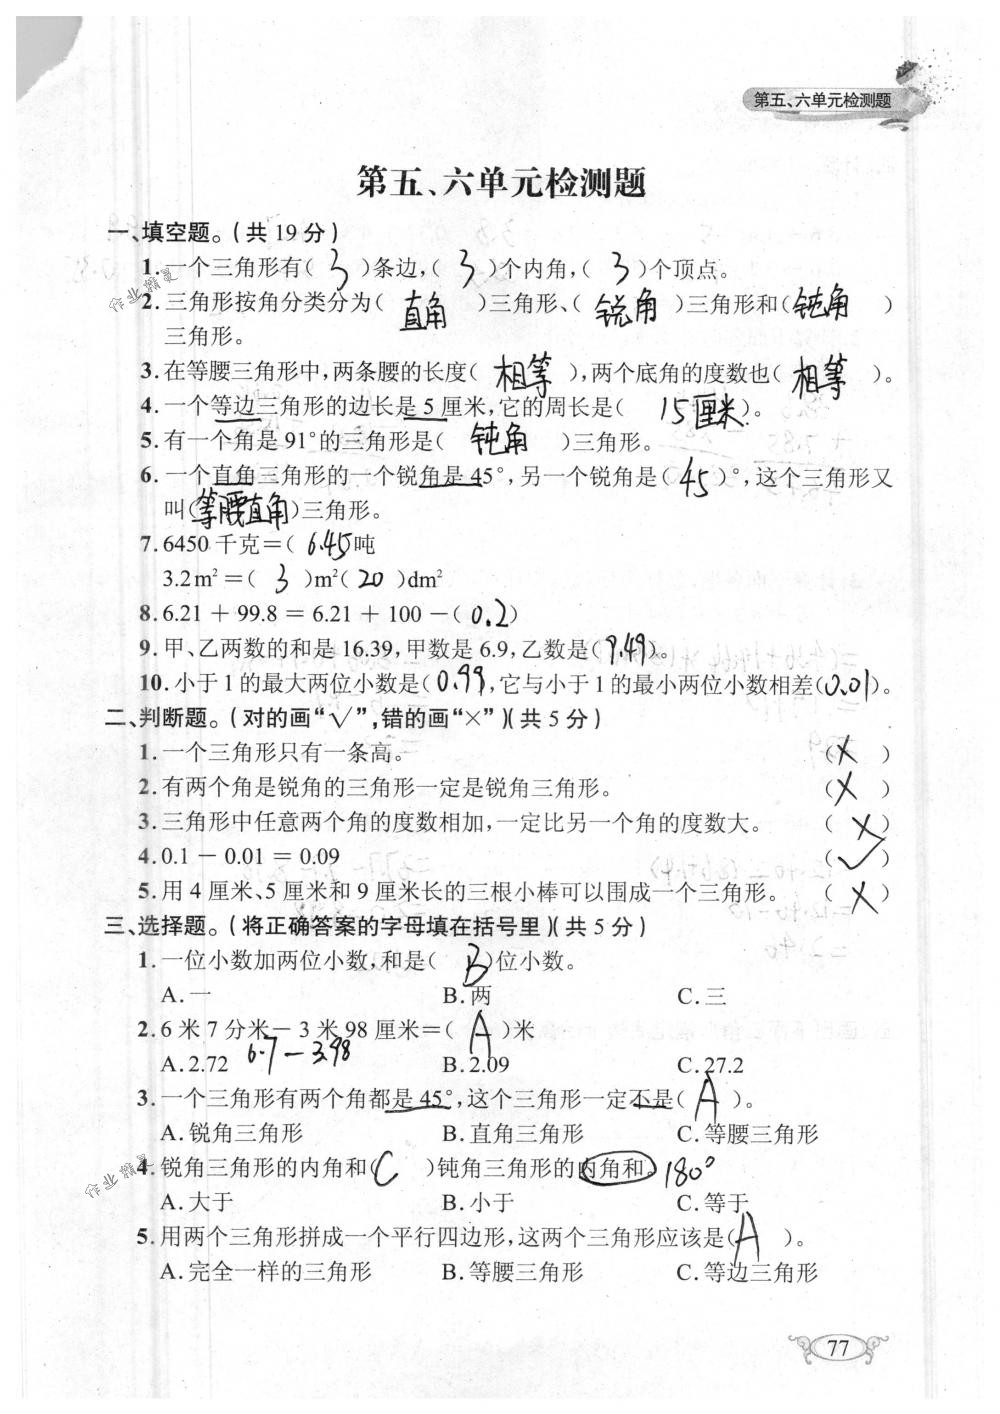 第五、六单元检测题
第五、六单元检测题
一、填空题。(共19分)
1.一个三角形有( 3 )条边,( 3 )个内角,( 3 )个顶点。
2.三角形按角分类分为( 直角 )三角形、( 锐角 )三角形和( 钝角 )
三角形。
3.在等腰三角形中,两条腰的长度( 相等 ),两个底角的度数也( 相等 )。
4.一个等边三角形的边长是5厘米,它的周长是( 15厘米 )。
5.有一个角是91°的三角形是( 钝角 )三角形。
6.一个直角三角形的一个锐角是45°,另一个锐角是( 45 )°,这个三角形又
叫(等腰直角)三角形。
7.6450千克=( 6.45吨
3.2m²=( 3 )m²( 20 )dm²
8.6.21+99.8=6.21+100-( 0.2 )
9.甲、乙两数的和是16.39,甲数是6.9,乙数是( 9.49 )。
10.小于1的最大两位小数是( 0.99 ),它与小于1的最小两位小数相差( 0.01 )。
二、判断题。(对的画“√”,错的画“×”)(共5分)
1.一个三角形只有一条高。 ( × )
2.有两个角是锐角的三角形一定是锐角三角形。 ( × )
3.三角形中任意两个角的度数相加,一定比另一个角的度数大。 ( × )
4.0.1-0.01=0.09 ( √ )
5.用4厘米、5厘米和9厘米长的三根小棒可以围成一个三角形。 ( × )
三、选择题。(将正确答案的字母填在括号里)(共5分)
1.一位小数加两位小数,和是( B )位小数。
A.一 B.两 C.三
2.6米7分米-3米98厘米=( A )米
6.7-3.98
A.2.72 B.2.09 C.27.2
3.一个三角形有两个角都是45°,这个三角形一定不是( A )。
A.锐角三角形 B.直角三角形 C.等腰三角形
4.锐角三角形的内角和( C )钝角三角形的内角和。 180°
A.大于 B.小于 C.等于
5.用两个三角形拼成一个平行四边形,这两个三角形应该是( A )。
A.完全一样的三角形 B.等腰三角形 C.等边三角形
77
作业精灵
作业精灵